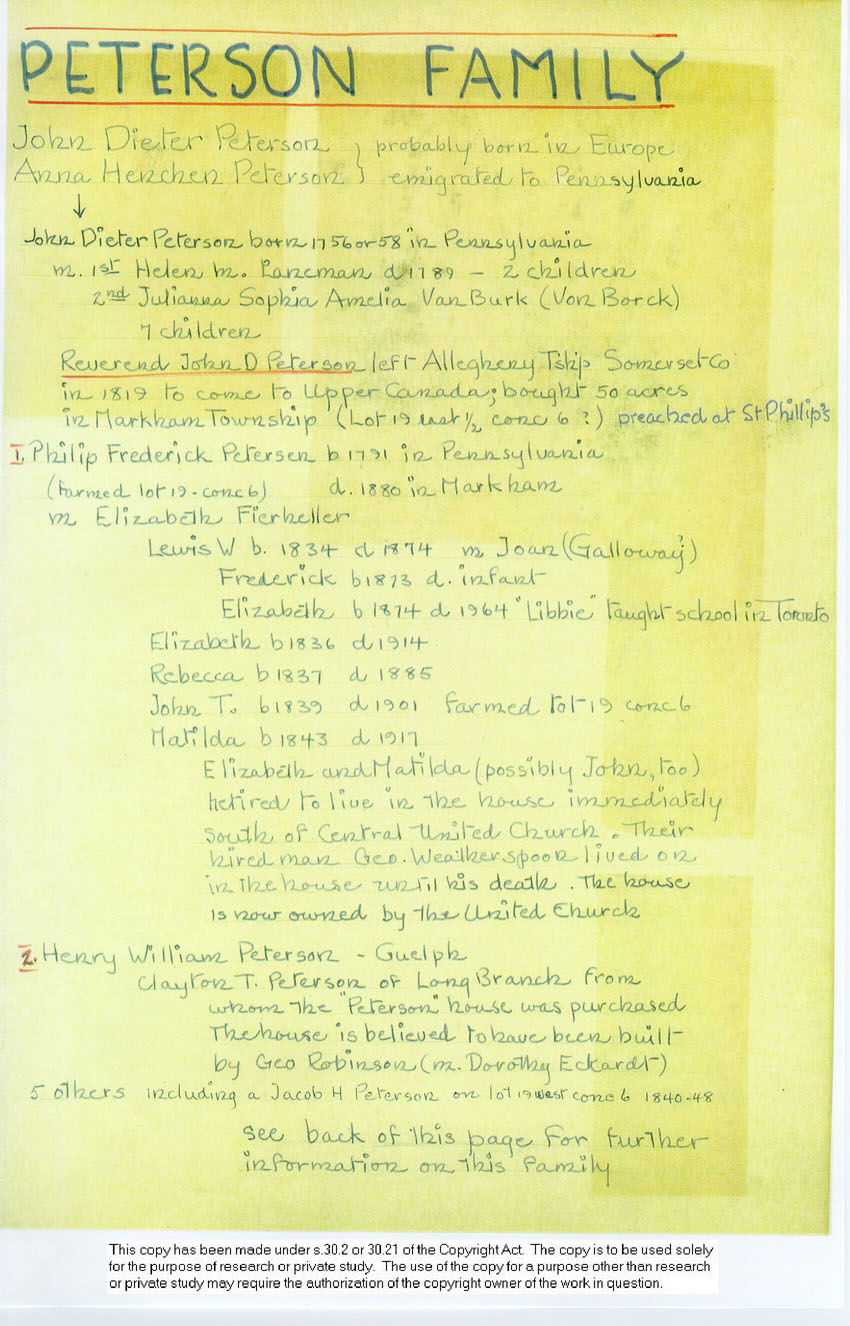 PETERSON FAMILY
John Dieter Peterson } probably born in Europe
Anna Henchen Peterson } emigrated to Pennsylvania
↓
John Dieter Peterson born 1756 or 58 in Pennsylvania
m. 1st Helen M. Laneman d 1789 - 2 children
2nd Julianna Sophia Amelia Van Burk (Von Borck)
7 children
Reverend John D Peterson left Allegheny Tship Somerset Co
in 1819 to come to Upper Canada; bought 50 acres
in Markham Township (Lot 19 east 1/2 conc 6 ?) preached at St Phillip's
1. Philip Frederick Petersen b 1791 in Pennsylvania
(farmed lot 19 - conc 6) d. 1880 in Markham
m Elizabeth Fierheller
Lewis W b. 1834 d 1874 m Joan (Galloway)
Frederick b 1873 d. infant
Elizabeth b 1874 d 1964 "Libbie" taught school in Toronto
Elizabeth b 1836 d 1914
Rebecca b 1837 d 1885
John T. b 1839 d 1901 farmed lot 19 conc 6
Matilda b 1843 d 1917
Elizabeth and Matilda (possibly John, too)
retired to live in the house immediately
south of Central United Church. Their
hired man Geo. Weatherspoon lived on
in the house until his death. The house
is now owned by the United Church
2. Henry William Peterson - Guelph
Clayton T. Peterson of Long Branch from
whom the "Peterson" house was purchased
The house is believed to have been built
by Geo Robinson (m. Dorothy Eckardt)
5 others including a Jacob H Peterson on lot 19 west conc 6 1840-48
see back of this page for further
information on this family
This copy has been made under s.30.2 or 30.21 of the Copyright Act. The copy is to be used solely
for the purpose of research or private study. The use of the copy for a purpose other than research
or private study may require the authorization of the copyright owner of the work in question.